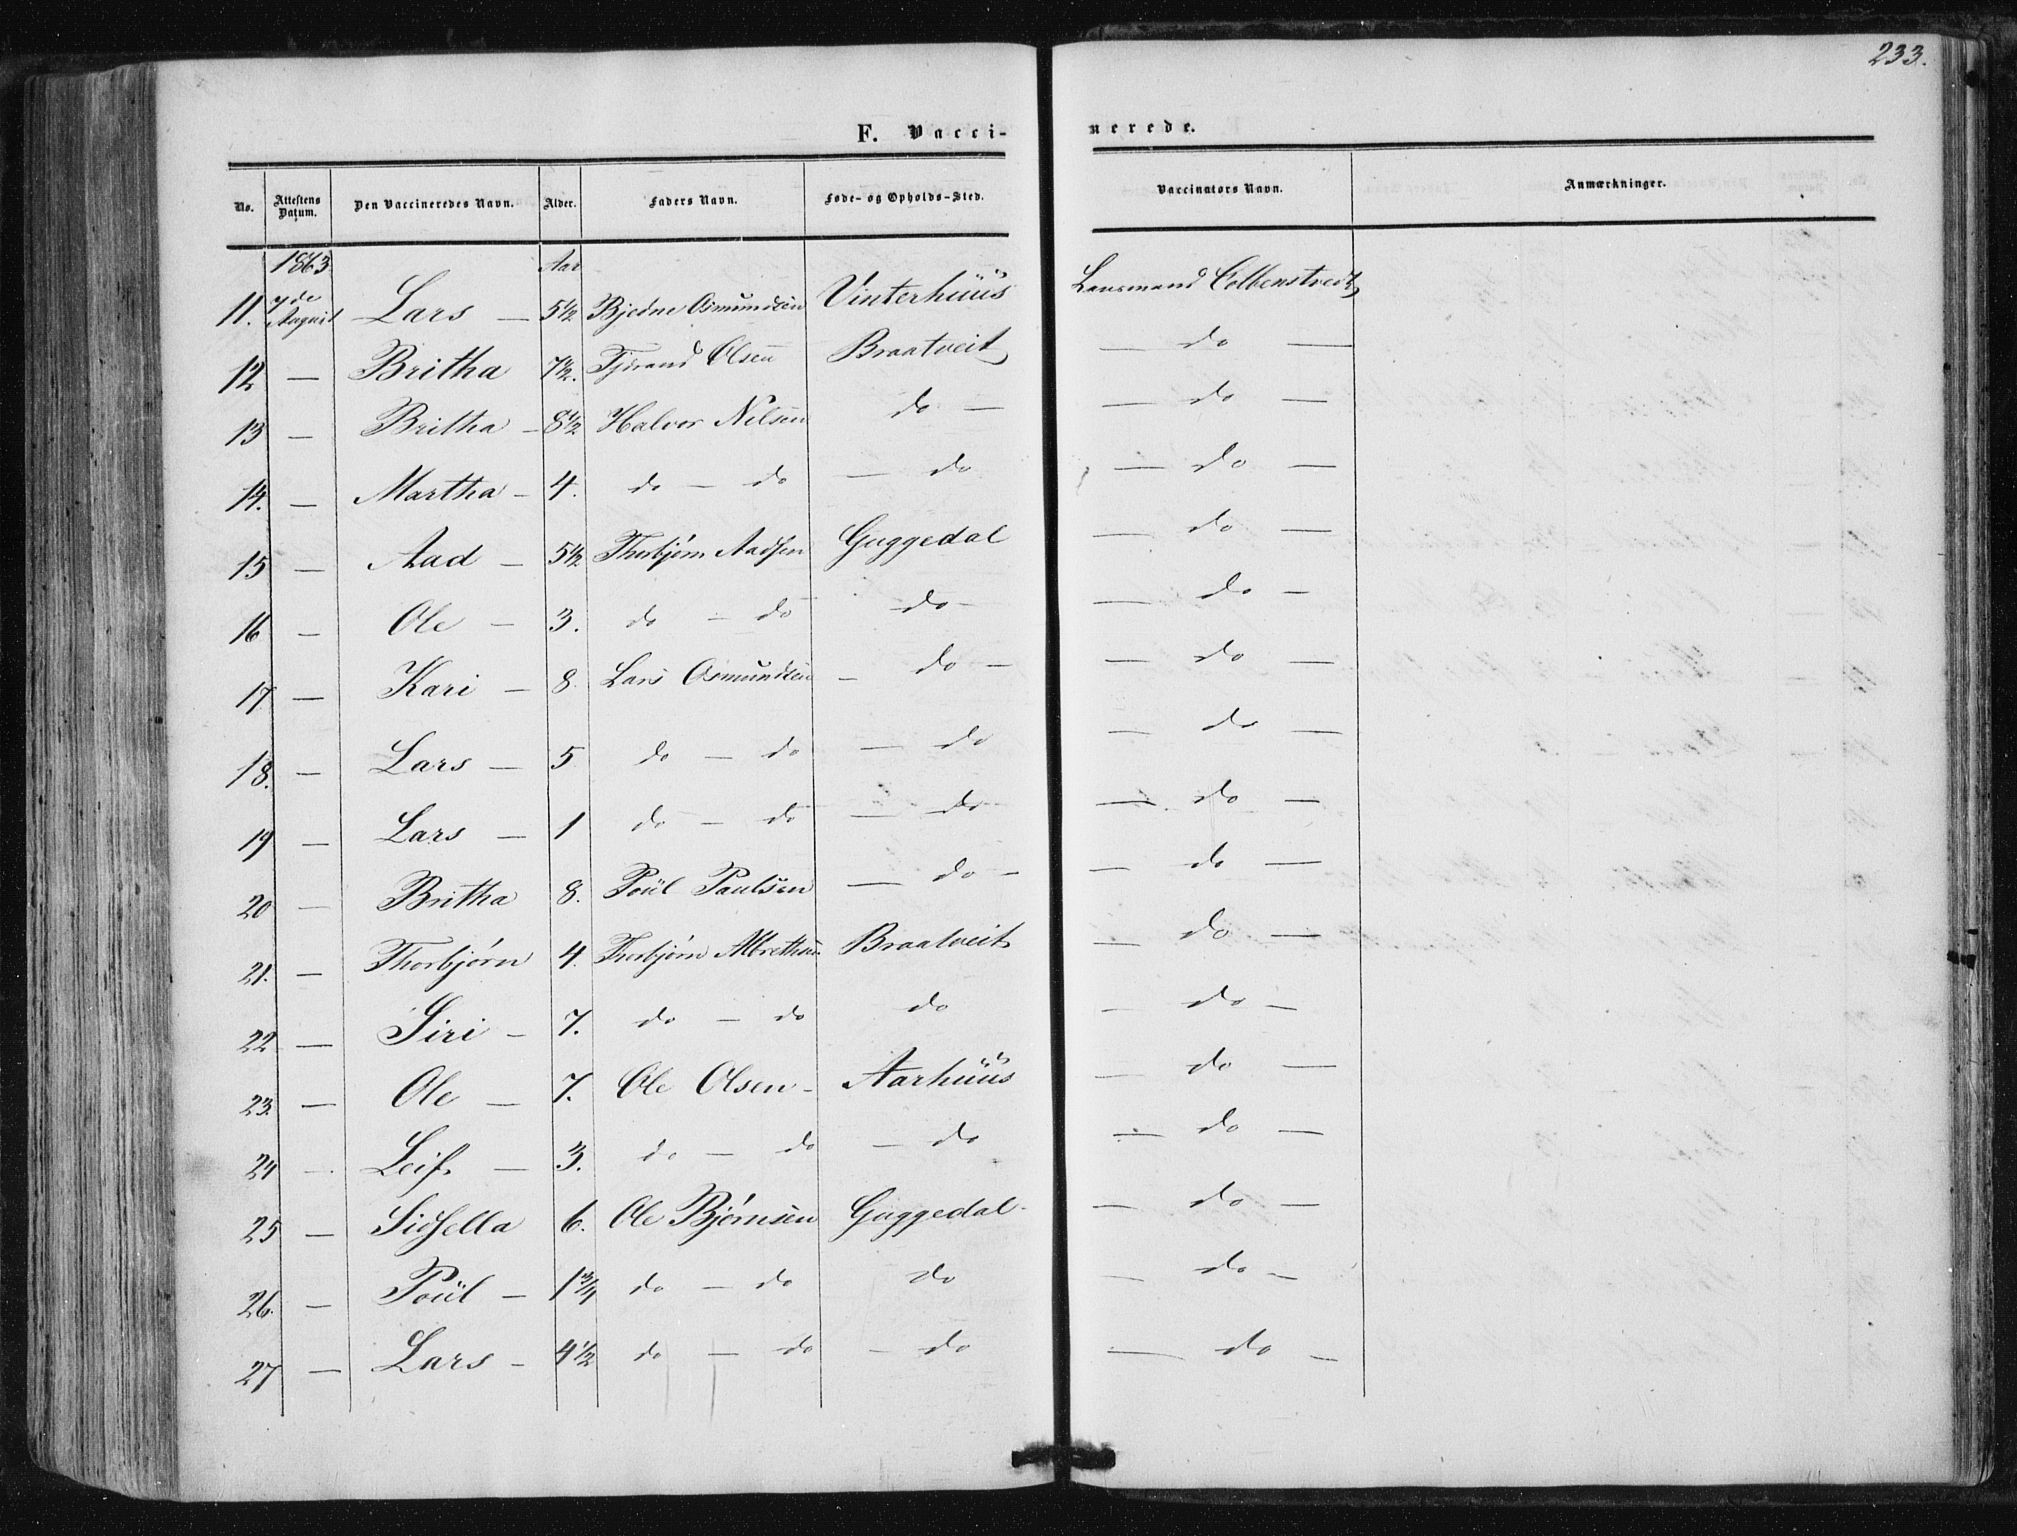 233.
F. Vacci-nerede.
No. Attestens Datum. Den Vaccineredes Navn. Alder. Faders Navn. Føde- og Opholds-Sted. Vaccinators Navn. Anmærkninger.
1863 Aar
11. 7de August Lars — 5 1/2 Bjedne Osmundsen Vinterhuus Lensmand
12 — Britha 7 1/2. Tjerand Olsen Braatveit — do —
13 — Britha — 8 1/2 Halvor Nilsen do — — do —
14. — Martha — 4. do — do — do — do —
15 — Aad — 5 1/2 Thorbjørn Aadsen Guggedal — do —
16 — Ole — 3. do — do do — — do —
17 — Kari — 8. Lars Osmundsen — do — — do —
18. — Lars — 5 do — do — do — do —
19 — Lars — 1 do — do — do — do —
20 — Britha 8. Poül Paulsen — do — — do —
21. — Thorbjørn 4. Thorbjørn Albrethsen Braatveit — do —
22 — Siri — 7. do — do do — do —
23. — Ole — 7. Ole Olsen — Aarhuus — do —
24 — Leif — 3. do — do — do — do —
25 — Sidsella 6. Ole Bjørnsen Guggedal — do —
26. — Poül — 1 3/4 do — do do — do —
27 — Lars — 4 1/2 do — do — do — do —